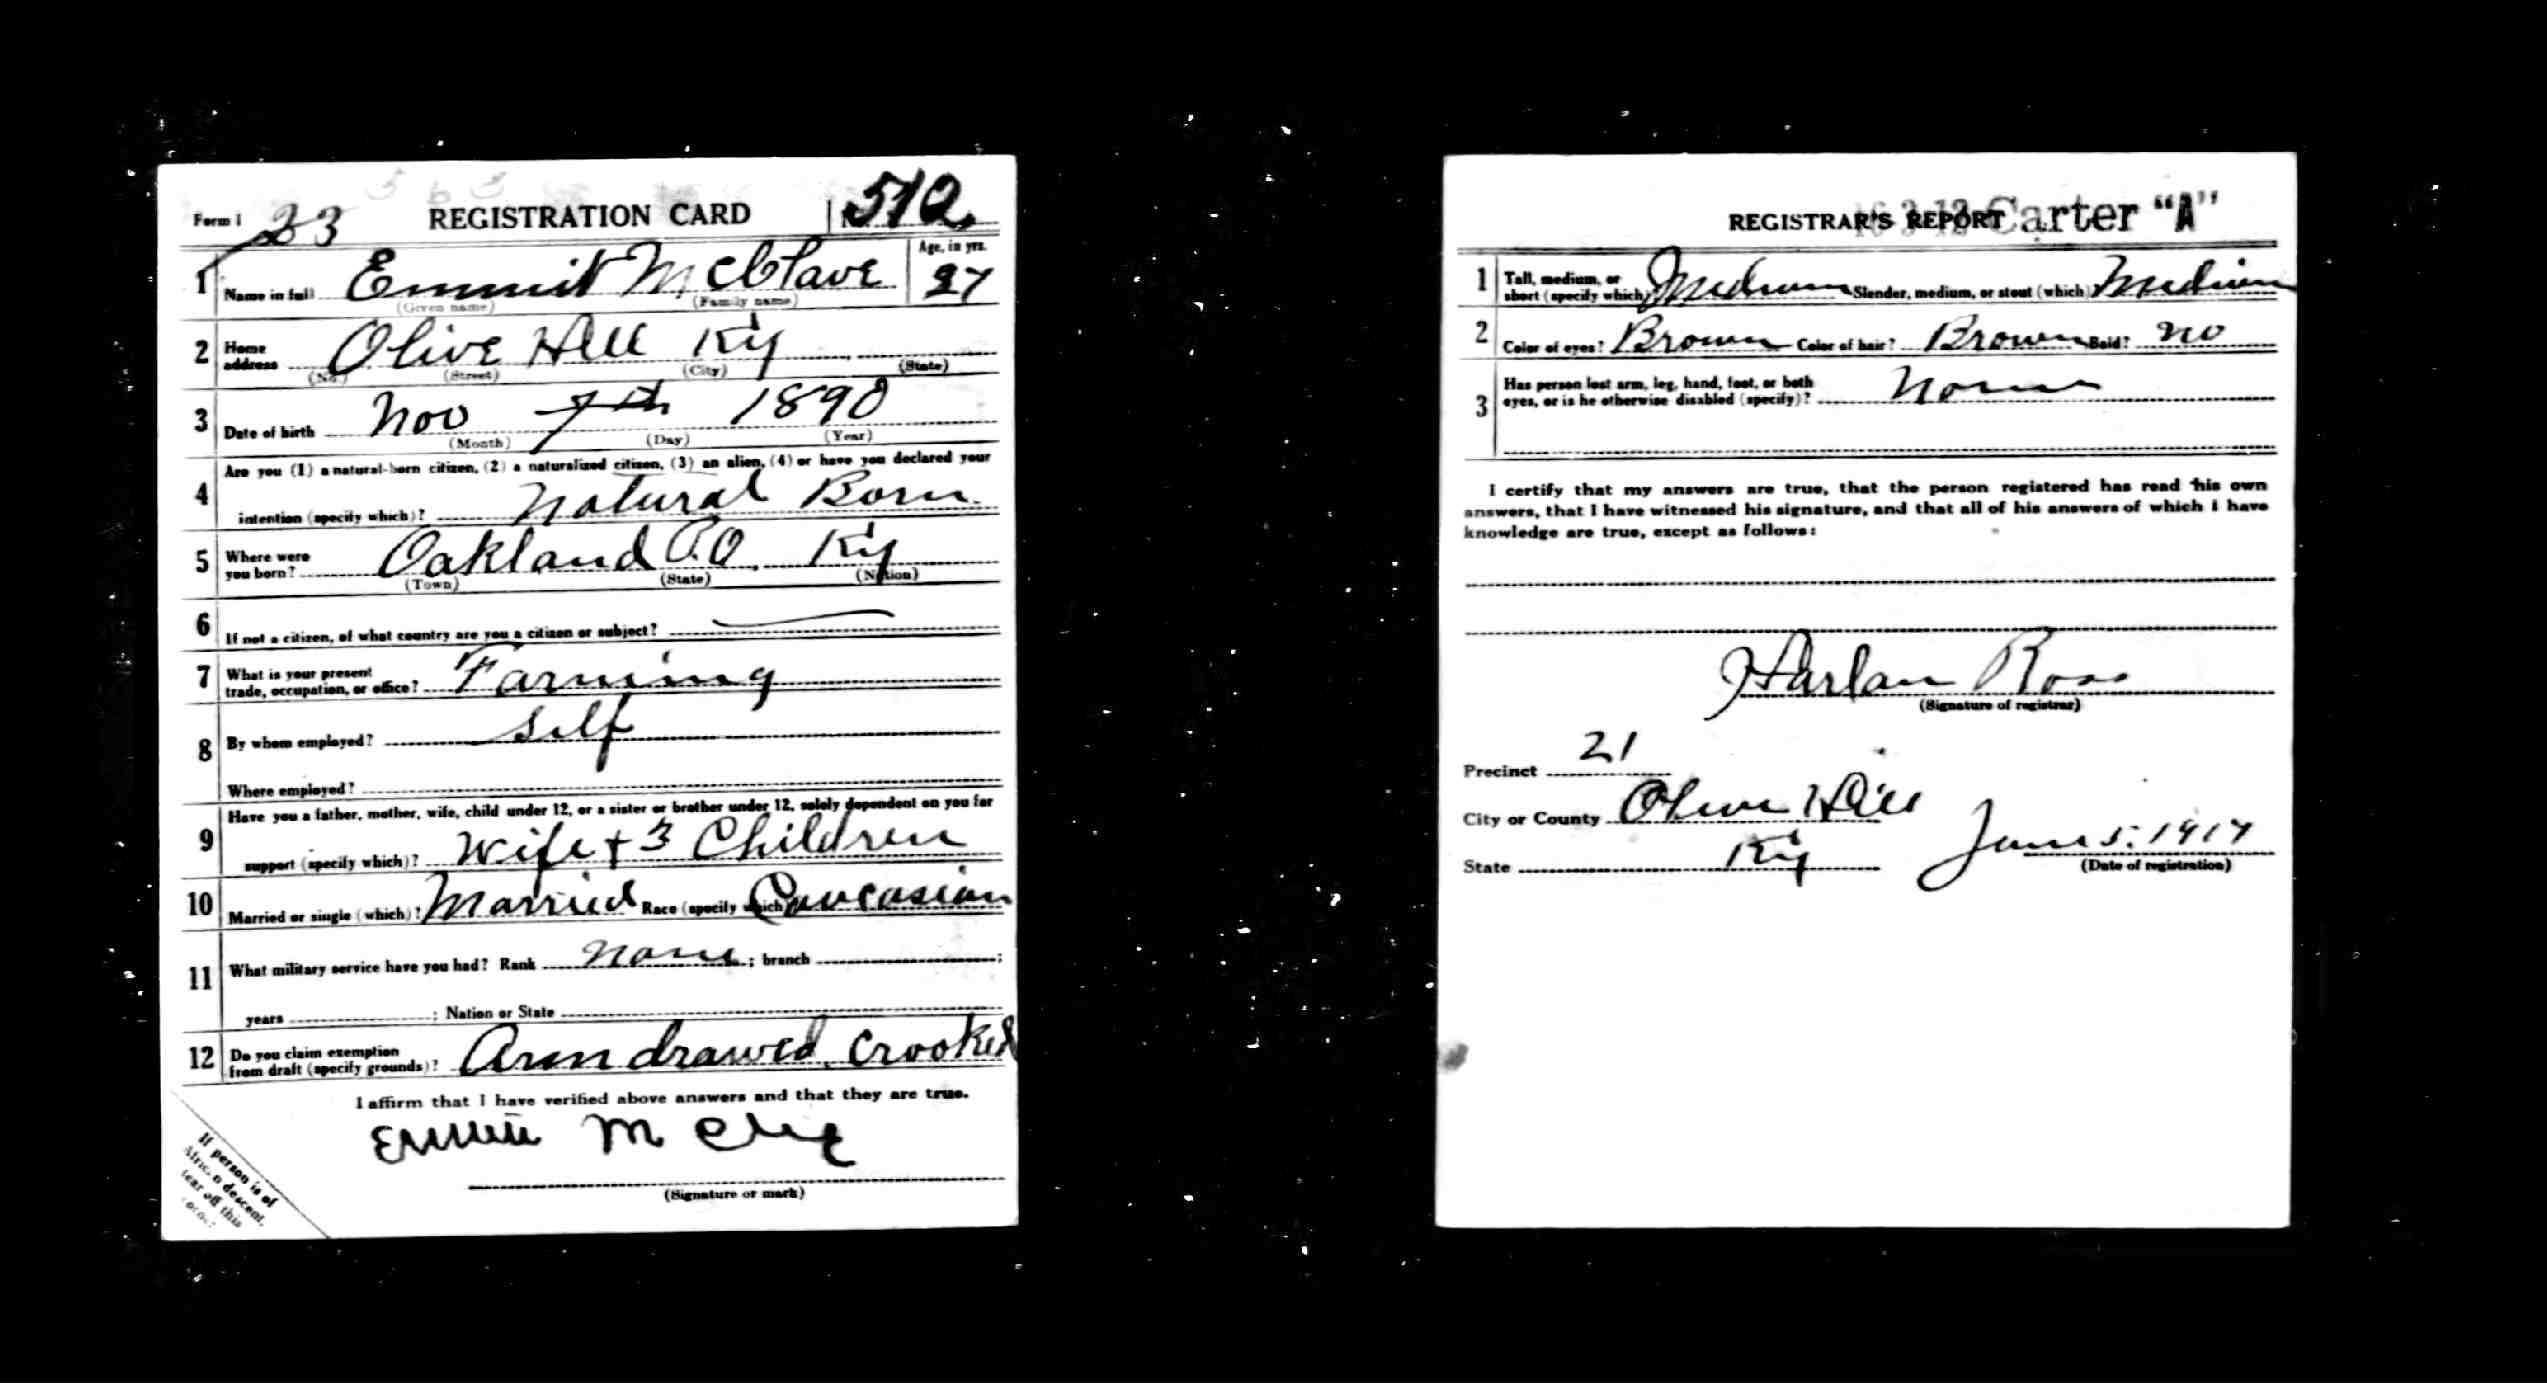 Form 1 23 REGISTRATION CARD 512
1 Name in full Emmit McGlave Age, in yrs. 27
(Given name) (Family name)
2 Home address Olive Hill Ky
(No.) (Street) (City) (State)
3 Date of birth Nov 7th 1890
(Month) (Day) (Year)
4 Are you (1) a natural-born citizen, (2) a naturalized citizen, (3) an alien, (4) or have you declared your
intention (specify which)? Natural Born
5 Where were you born? Oakland P.O. Ky
(Town) (State) (Nation)
6 If not a citizen, of what country are you a citizen or subject?
7 What is your present trade, occupation, or office? Farming
8 By whom employed? Self
Where employed?
9 Have you a father, mother, wife, child under 12, or a sister or brother under 12, solely dependent on you for
support (specify which)? Wife + 3 Children
10 Married or single (which)? Married Race (specify which)? Caucasian
11 What military service have you had? Rank None ; branch ;
years ; Nation or State
12 Do you claim exemption from draft (specify grounds)? Arm drawed crooked
I affirm that I have verified above answers and that they are true.
(Signature or mark)
If person is of
African descent,
tear off this
corner
REGISTRAR'S REPORT Carter "A"
1 Tall, medium, or short (specify which)? Medium Slender, medium, or stout (which)? Medium
2 Color of eyes? Brown Color of hair? Brown Bald? No
3 Has person lost arm, leg, hand, foot, or both
eyes, or is he otherwise disabled (specify)? None
I certify that my answers are true, that the person registered has read his own
answers, that I have witnessed his signature, and that all of his answers of which I have
knowledge are true, except as follows:
Harlan Ross
(Signature of registrar)
Precinct 21
City or County Olive Hill
State Ky June 5. 1917
(Date of registration)